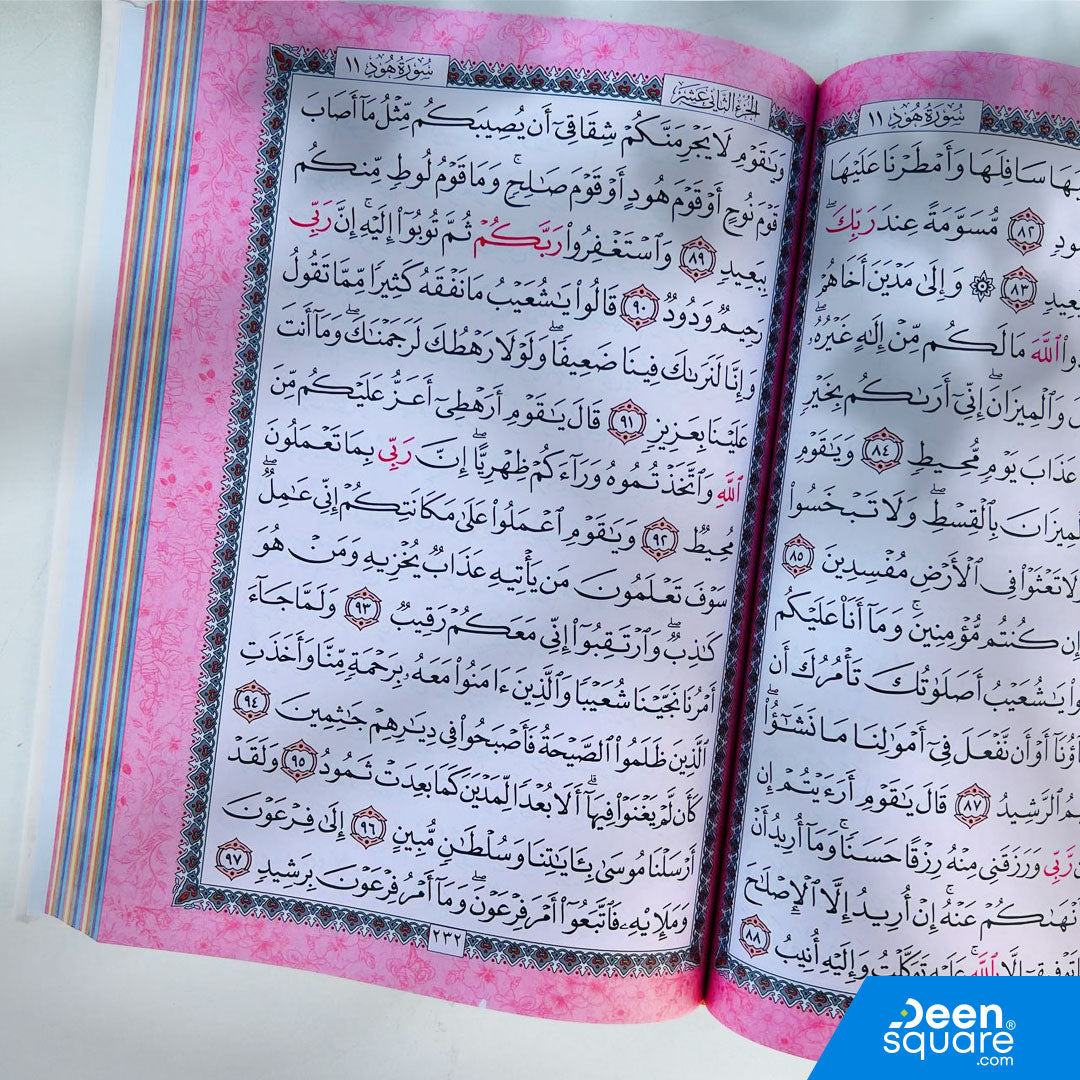 سُورَةُ هُودٍ ١١
سَافِلَهَا وَأَمْطَرْنَا عَلَيْهَا
٨٢ مُّسَوَّمَةً عِندَ رَبِّكَۖ
٨٣ ۞ وَإِلَىٰ مَدْيَنَ أَخَاهُمْ
ٱللَّهَ مَا لَكُم مِّنْ إِلَٰهٍ غَيْرُهُۥۖ
وَٱلْمِيزَانَۖ إِنِّىٓ أَرَىٰكُم بِخَيْرٍ
عَذَابَ يَوْمٍ مُّحِيطٍ ٨٤ وَيَٰقَوْمِ
بِٱلْقِسْطِۖ وَلَا تَبْخَسُوا۟
تَعْثَوْا۟ فِى ٱلْأَرْضِ مُفْسِدِينَ ٨٥
إِن كُنتُم مُّؤْمِنِينَۚ وَمَآ أَنَا۠ عَلَيْكُم
يَٰشُعَيْبُ أَصَلَوٰتُكَ تَأْمُرُكَ أَن
أَوْ أَن نَّفْعَلَ فِىٓ أَمْوَٰلِنَا مَا نَشَٰٓؤُا۟ۖ
ٱلرَّشِيدُ ٨٧ قَالَ يَٰقَوْمِ أَرَءَيْتُمْ إِن
رَّبِّى وَرَزَقَنِى مِنْهُ رِزْقًا حَسَنًاۚ وَمَآ أُرِيدُ أَنْ
عَنْهُۚ إِنْ أُرِيدُ إِلَّا ٱلْإِصْلَٰحَ
إِلَّا بِٱللَّهِۚ عَلَيْهِ تَوَكَّلْتُ وَإِلَيْهِ أُنِيبُ ٨٨
الجزء الثاني عشر
سُورَةُ هُودٍ ١١
وَيَٰقَوْمِ لَا يَجْرِمَنَّكُمْ شِقَاقِىٓ أَن يُصِيبَكُم مِّثْلُ مَآ أَصَابَ
قَوْمَ نُوحٍ أَوْ قَوْمَ هُودٍ أَوْ قَوْمَ صَٰلِحٍۚ وَمَا قَوْمُ لُوطٍ مِّنكُم
بِبَعِيدٍ ٨٩ وَٱسْتَغْفِرُوا۟ رَبَّكُمْ ثُمَّ تُوبُوٓا۟ إِلَيْهِۚ إِنَّ رَبِّى
رَحِيمٌ وَدُودٌ ٩٠ قَالُوا۟ يَٰشُعَيْبُ مَا نَفْقَهُ كَثِيرًا مِّمَّا تَقُولُ
وَإِنَّا لَنَرَىٰكَ فِينَا ضَعِيفًاۖ وَلَوْلَا رَهْطُكَ لَرَجَمْنَٰكَۖ وَمَآ أَنتَ
عَلَيْنَا بِعَزِيزٍ ٩١ قَالَ يَٰقَوْمِ أَرَهْطِىٓ أَعَزُّ عَلَيْكُم مِّنَ
ٱللَّهِ وَٱتَّخَذْتُمُوهُ وَرَآءَكُمْ ظِهْرِيًّاۖ إِنَّ رَبِّى بِمَا تَعْمَلُونَ
مُحِيطٌ ٩٢ وَيَٰقَوْمِ ٱعْمَلُوا۟ عَلَىٰ مَكَانَتِكُمْ إِنِّى عَٰمِلٌۖ
سَوْفَ تَعْلَمُونَ مَن يَأْتِيهِ عَذَابٌ يُخْزِيهِ وَمَنْ هُوَ
كَٰذِبٌۖ وَٱرْتَقِبُوٓا۟ إِنِّى مَعَكُمْ رَقِيبٌ ٩٣ وَلَمَّا جَآءَ
أَمْرُنَا نَجَّيْنَا شُعَيْبًا وَٱلَّذِينَ ءَامَنُوا۟ مَعَهُۥ بِرَحْمَةٍ مِّنَّا وَأَخَذَتِ
ٱلَّذِينَ ظَلَمُوا۟ ٱلصَّيْحَةُ فَأَصْبَحُوا۟ فِى دِيَٰرِهِمْ جَٰثِمِينَ ٩٤
كَأَن لَّمْ يَغْنَوْا۟ فِيهَآۗ أَلَا بُعْدًا لِّمَدْيَنَ كَمَا بَعِدَتْ ثَمُودُ ٩٥ وَلَقَدْ
أَرْسَلْنَا مُوسَىٰ بِـَٔايَٰتِنَا وَسُلْطَٰنٍ مُّبِينٍ ٩٦ إِلَىٰ فِرْعَوْنَ
وَمَلَإِي۟هِۦ فَٱتَّبَعُوٓا۟ أَمْرَ فِرْعَوْنَۖ وَمَآ أَمْرُ فِرْعَوْنَ بِرَشِيدٍ ٩٧
٢٣٢
Deen
square®
.com